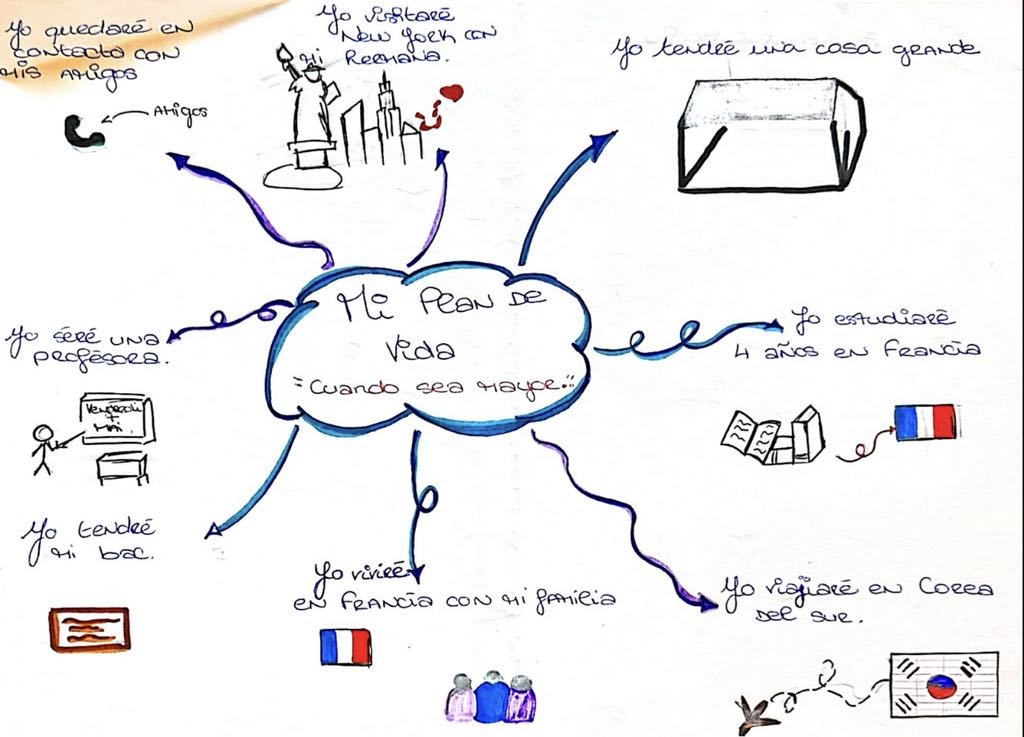 Yo quedaré en
contacto con
mis amigos
Amigos
Yo visitaré
New York con
Mi hermana.
Yo tendré una casa grande
Mi Plan de
Vida
"Cuando sea mayor."
Yo séré una
profésora.
Yo estudiaré
4 años en Francia
Yo tendré
mi bac.
Yo viviré
en Francia con mi familia
Yo viajiaré en Corea
del sur.